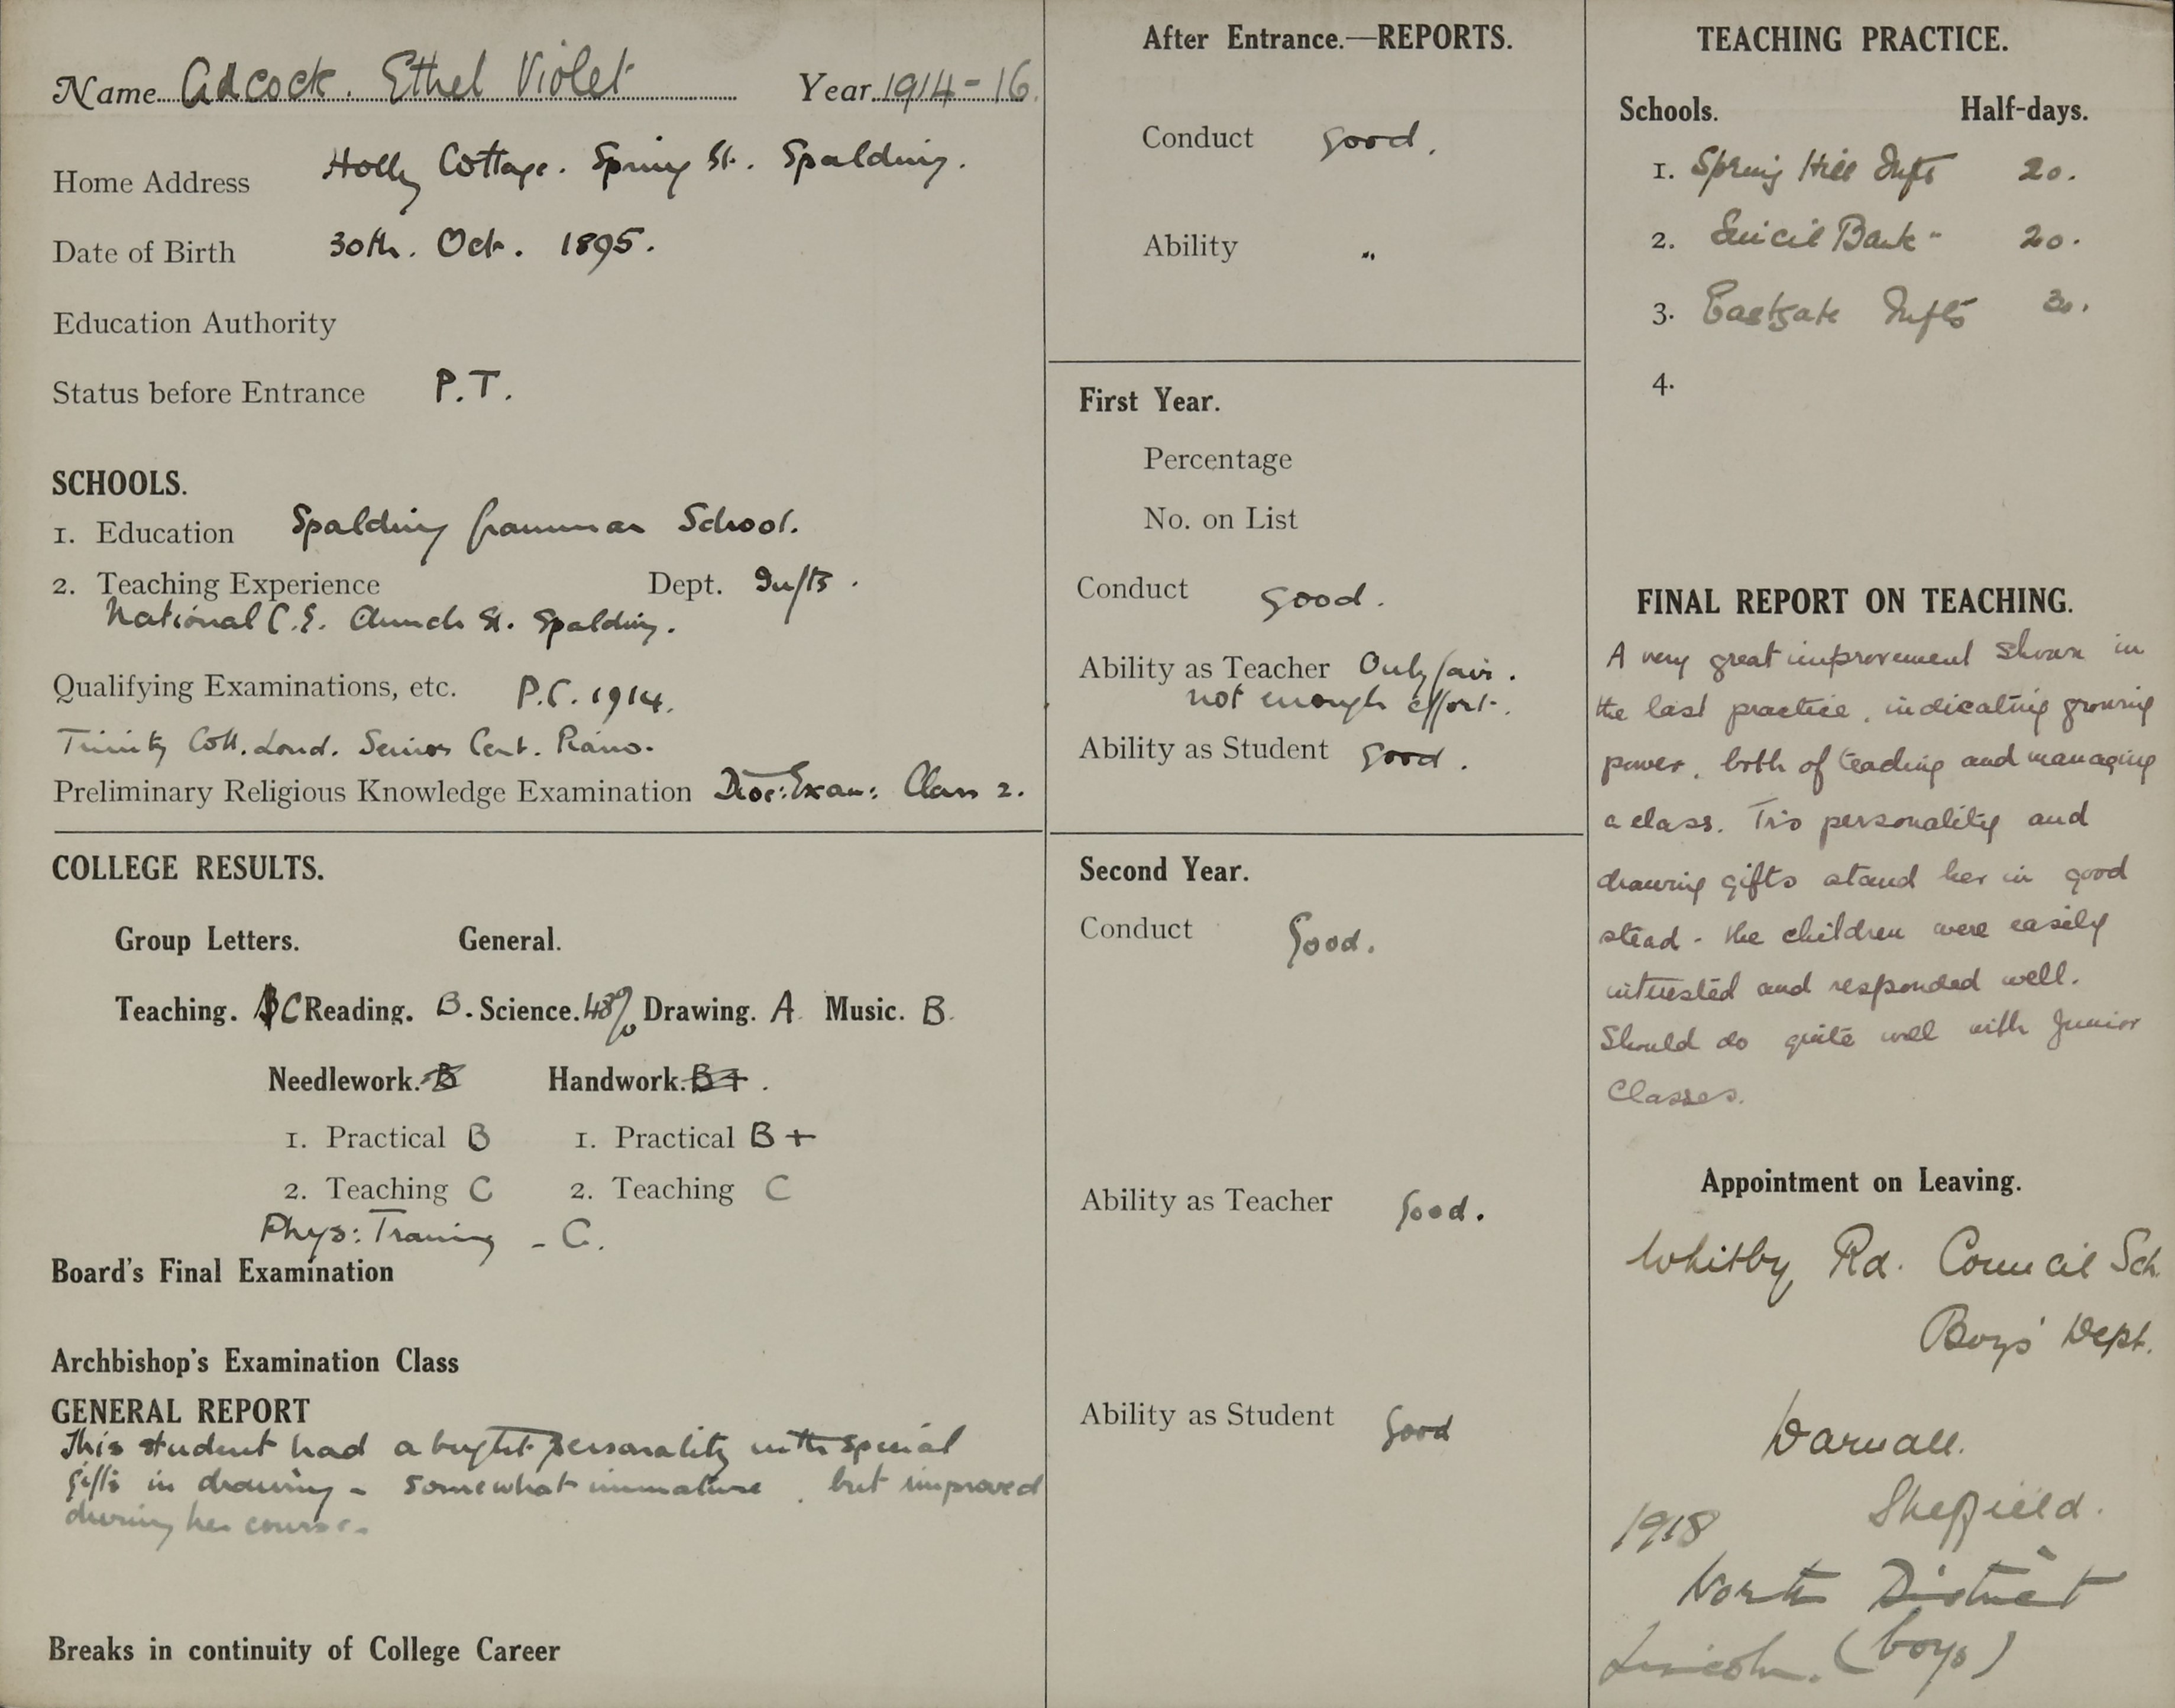 Name Adcock. Ethel Violet Year 1914-16.
Home Address Holly Cottage. Spring St. Spalding.
Date of Birth 30th. Oct. 1895.
Education Authority
Status before Entrance P.T.
SCHOOLS.
1. Education Spalding Grammar School.
2. Teaching Experience Dept. Infts.
National C.E. Church St. Spalding.
Qualifying Examinations, etc. P.C. 1914.
Trinity Coll. Lond. Senior Cert. Piano.
Preliminary Religious Knowledge Examination Dioc: Exam: Class 2.
COLLEGE RESULTS.
Group Letters. General.
Teaching. C Reading. B. Science. 48% Drawing. A Music. B.
Needlework. B Handwork. B+.
1. Practical B 1. Practical B+
2. Teaching C 2. Teaching C
Phys: Training - C.
Board's Final Examination
Archbishop's Examination Class
GENERAL REPORT
This student had a bright personality with special
gifts in drawing - somewhat immature, but improved
during her course.
Breaks in continuity of College Career
After Entrance.—REPORTS.
Conduct good.
Ability "
First Year.
Percentage
No. on List
Conduct good.
Ability as Teacher Only fair.
not enough effort.
Ability as Student good.
Second Year.
Conduct Good.
Ability as Teacher Good.
Ability as Student Good
TEACHING PRACTICE.
Schools. Half-days.
1. Spring Hill Infts 20.
2. Sincil Bank " 20.
3. Eastgate Infts 30.
4.
FINAL REPORT ON TEACHING.
A very great improvement shown in
the last practice, indicating growing
power, both of teaching and managing
a class. personality and
drawing gifts stand her in good
stead - the children were easily
interested and responded well.
Should do quite well with Junior
Classes.
Appointment on Leaving.
Whitby Rd. Council Sch.
Boys' Dept.
Darnall.
Sheffield.
1918
North District
Lincoln. (boys)